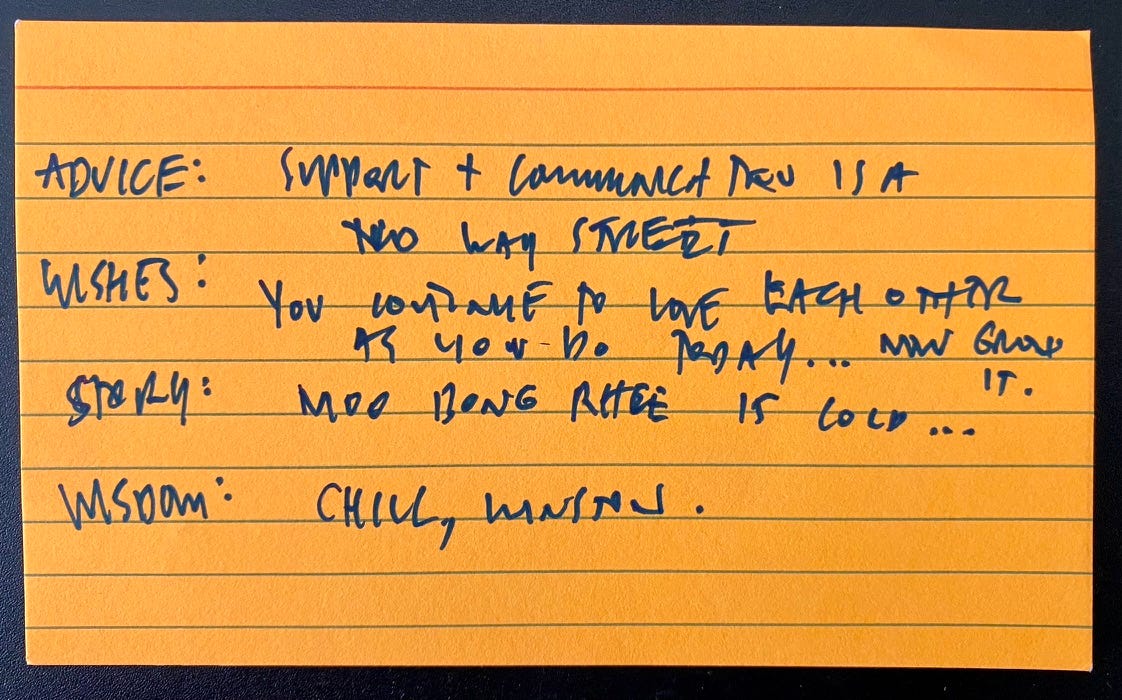 ADVICE: SUPPORT + COMMUNICATION IS A
TWO WAY STREET
WISHES: YOU CONTINUE TO LOVE EACH OTHER
AS YOU DO TODAY... NOW GROW
IT.
STORY: MOO BONG RHEE IS COLD...
WISDOM: CHILL, WINSTON.